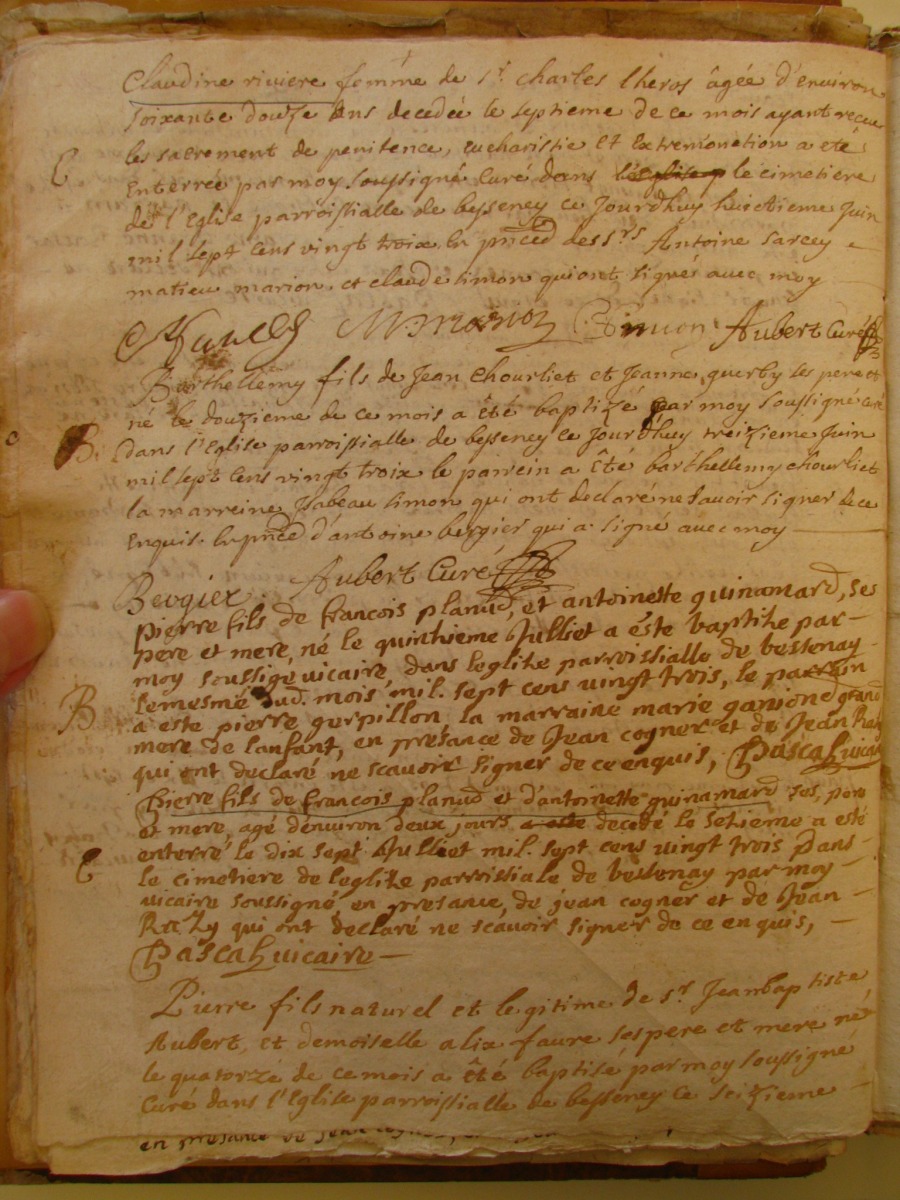 Claudine riviere femme de sr. charles lheros âgée d'environ
soixante douze ans decedée le septieme de ce mois ayant receu
les sacrement de penitence, eucharistie et extremonction a eté
E
enterrée par moy soussigné curé dans l'eglise p le cimetiere
de l'Eglise parroissialle de besseney ce jourdhuy huictieme juin
mil sept cens vingt troix en pnced des srs Antoine sarcey
matieu marion et claude simon qui ont signés avec moy
M marion Simon Aubert Curé
Barthellemy fils de Jean Chourliet et Jeanne querby ses pere et
né le douzieme de ce mois a êté baptizé par moy soussigné curé
B.
dans l'Eglise parroissialle de besseney ce Jourdhuy treizieme Juin
mil sept cens vingt troix le parrein a êté barthellemy chourliet
la marreine Isabeau simon qui ont declaré ne savoir signer de ce
enquis. en pnce d'antoine bergier qui a signé avec moy
Bergier. Aubert Curé
pierre fils de francois planud, et antoinette guinamard, ses
pere et mere, né le quinthieme Julliet a éste baptithe par
moy soussige vicaire, dans leglithe parroissialle de bessenay
lemesme dud. mois mil. sept cens vingt trois, le parrain
B
a este pierre gerpillon, la marraine marie ganiond grand
mere de lanfant, en presance de Jean cogner et de Jean
qui ont declaré ne scavoir signer de ce enquis, Pascal vicaire
Pierre fils de francois planud et d'antoinette guinamard ses, pere
et mere, agé dénviron deux jours a este decedé le sethieme a esté
E
enterré le dix sept Julliet mil. sept cens vingt trois dans
le cimetiere de leglithe parroissiale de bessenay par moy
vicaire soussigné en presance, de jean cogner et de Jean
Razy qui ont declaré ne scavoir signer de ce enquis,
Pascal vicaire
Pierre fils naturel et legitime de sr Jean baptiste
Aubert, et demoiselle alix faure ses pere et mere né
le quatorze de ce mois a êté baptisé par moy soussigné
Curé dans l'Eglise parroissialle de besseney ce seizieme
en presance de jean cogner,